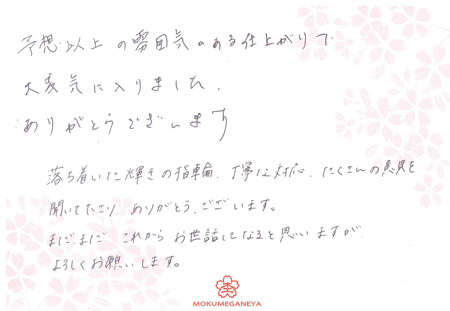 予想以上の雰囲気のある仕上がりで
大変気に入りました。
ありがとうございます
落ち着いた輝きの指輪、丁寧な対応、たくさんの意見を
聞いて下さり、ありがとうございます。
まだまだ これから お世話になると思いますが、
よろしくお願いします。
MOKUMEGANEYA